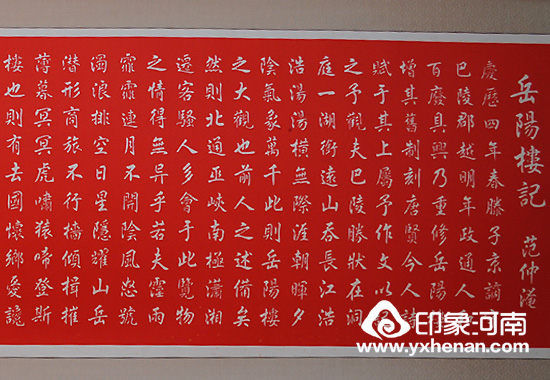 岳陽樓記
范仲淹
慶歷四年春滕子京謫
巴陵郡越明年政通人
百廢具興乃重修岳陽
增其舊制刻唐賢今人詩
賦于其上屬予作文以
之予觀夫巴陵勝狀在洞
庭一湖銜遠山吞長江浩
浩湯湯橫無際涯朝暉夕
陰氣象萬千此則岳陽樓
之大觀也前人之述備矣
然則北通巫峽南極瀟湘
遷客騷人多會于此覽物
之情得無异乎若夫霪雨
霏霏連月不開陰風怒號
濁浪排空日星隱耀山岳
潛形商旅不行檣傾楫摧
薄暮冥冥虎嘯猿啼登斯
樓也則有去國懷鄉憂讒
印象河南
www.yxhenan.com